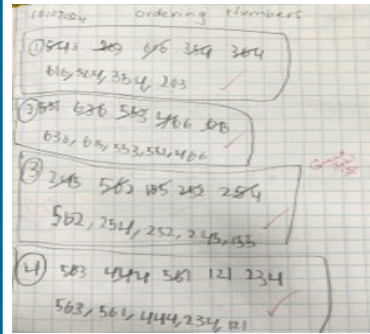 ordering Numbers
① 543 263 616 354 364
616, 564, 354, 263
② 551 636 553 466 615
636, 615, 553, 551, 466
③ 245 562 155 252 254
562, 254, 252, 245, 155
④ 563 444 561 121 234
563, 561, 444, 234, 121